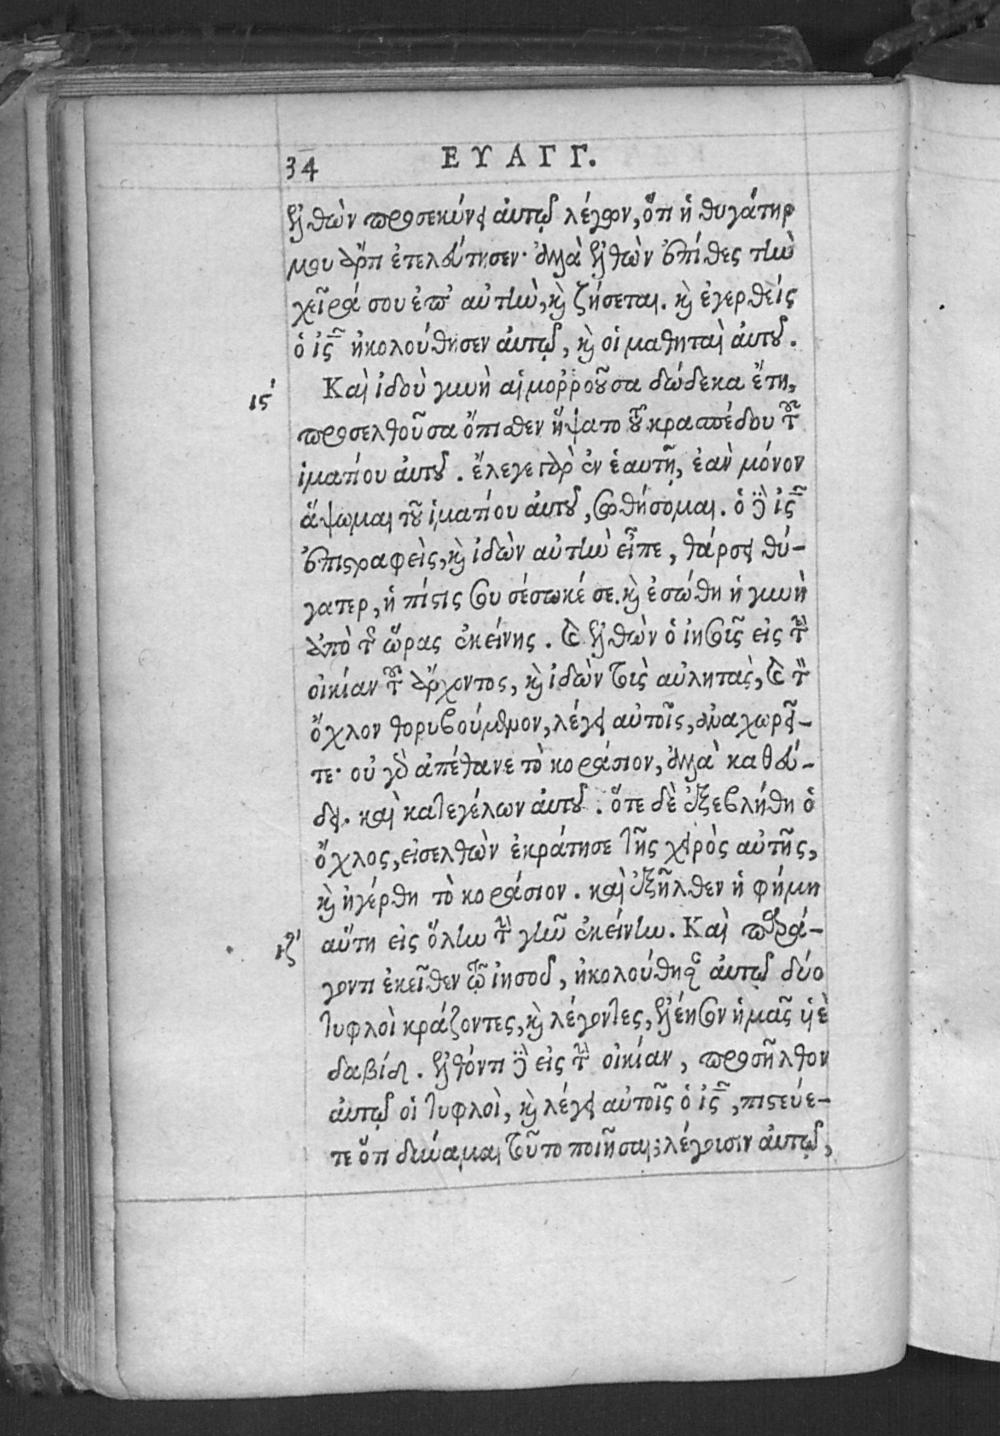 34 ΕΥΑΓΓ.
ἐλθὼν προσεκύνει αὐτῷ λέγων, ὅτι ἡ θυγάτηρ
μου ἄρτι ἐτελεύτησεν· ἀλλὰ ἐλθὼν ἐπίθες τὴν
χεῖρά σου ἐπ' αὐτὴν, καὶ ζήσεται. καὶ ἐγερθεὶς
ὁ ἰς͂ ἠκολούθησεν αὐτῷ, καὶ οἱ μαθηταὶ αὐτοῦ.
ις΄ Καὶ ἰδοὺ γυνὴ αἱμοῤῥοοῦσα δώδεκα ἔτη,
προσελθοῦσα ὄπισθεν ἥψατο τοῦ κρασπέδου τοῦ
ἱματίου αὐτοῦ. ἔλεγε γὰρ ἐν ἑαυτῇ, ἐὰν μόνον
ἅψωμαι τοῦ ἱματίου αὐτοῦ, σωθήσομαι. ὁ δὲ ἰς͂
ἐπιστραφεὶς, καὶ ἰδὼν αὐτὴν εἶπε, θάρσει θύ-
γατερ, ἡ πίστις σου σέσωκέ σε. καὶ ἐσώθη ἡ γυνὴ
ἀπὸ τῆς ὥρας ἐκείνης. καὶ ἐλθὼν ὁ ἰησοῦς εἰς τὴν
οἰκίαν τοῦ ἄρχοντος, καὶ ἰδὼν τοὺς αὐλητὰς, καὶ τὸν
ὄχλον θορυβούμενον, λέγει αὐτοῖς, ἀναχωρεῖ-
τε· οὐ γὰρ ἀπέθανε τὸ κοράσιον, ἀλλὰ καθεύ-
δει. καὶ κατεγέλων αὐτοῦ. ὅτε δὲ ἐξεβλήθη ὁ
ὄχλος, εἰσελθὼν ἐκράτησε τῆς χειρὸς αὐτῆς,
καὶ ἠγέρθη τὸ κοράσιον. καὶ ἐξῆλθεν ἡ φήμη
ιζ΄ αὕτη εἰς ὅλην τὴν γῆν ἐκείνην. Καὶ παρά-
γοντι ἐκεῖθεν τῷ ἰησοῦ, ἠκολούθησαν αὐτῷ δύο
τυφλοὶ κράζοντες, καὶ λέγοντες, ἐλέησον ἡμᾶς υἱὲ
δαβίδ. ἐλθόντι δὲ εἰς τὴν οἰκίαν, προσῆλθον
αὐτῷ οἱ τυφλοὶ, καὶ λέγει αὐτοῖς ὁ ἰς͂, πιστεύε-
τε ὅτι δύναμαι τοῦτο ποιῆσαι; λέγουσιν αὐτῷ,